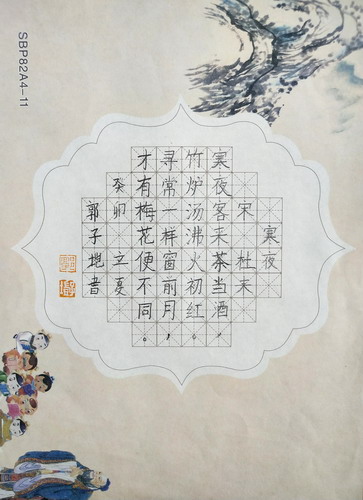 寒夜
宋 杜耒
寒夜客来茶当酒，
竹炉汤沸火初红。
寻常一样窗前月，
才有梅花便不同。
癸卯 立夏
郭子 书
SBP82A4-11